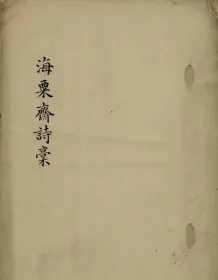 海粟齋詩稾